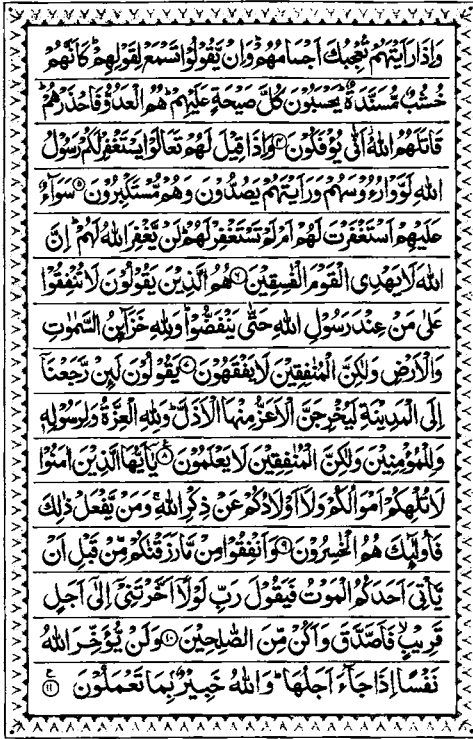 وَاِذَا رَاَيْتَهُمْ تُعْجِبُكَ اَجْسَامُهُمْ ؕ وَاِنْ يَّقُوْلُوْا تَسْمَعْ لِقَوْلِهِمْ ؕ كَاَنَّهُمْ
خُشُبٌ مُّسَنَّدَةٌ ؕ يَحْسَبُوْنَ كُلَّ صَيْحَةٍ عَلَيْهِمْ ؕ هُمُ الْعَدُوُّ فَاحْذَرْهُمْ ؕ
قَاتَلَهُمُ اللّٰهُ ؗ اَنّٰى يُؤْفَكُوْنَ ۴ وَاِذَا قِيْلَ لَهُمْ تَعَالَوْا يَسْتَغْفِرْ لَكُمْ رَسُوْلُ
اللّٰهِ لَوَّوْا رُءُوْسَهُمْ وَرَاَيْتَهُمْ يَصُدُّوْنَ وَهُمْ مُّسْتَكْبِرُوْنَ ۵ سَوَآءٌ
عَلَيْهِمْ اَسْتَغْفَرْتَ لَهُمْ اَمْ لَمْ تَسْتَغْفِرْ لَهُمْ ؕ لَنْ يَّغْفِرَ اللّٰهُ لَهُمْ ؕ اِنَّ
اللّٰهَ لَا يَهْدِى الْقَوْمَ الْفٰسِقِيْنَ ۶ هُمُ الَّذِيْنَ يَقُوْلُوْنَ لَا تُنْفِقُوْا
عَلٰى مَنْ عِنْدَ رَسُوْلِ اللّٰهِ حَتّٰى يَنْفَضُّوْا ؕ وَلِلّٰهِ خَزَآئِنُ السَّمٰوٰتِ
وَالْاَرْضِ وَلٰكِنَّ الْمُنٰفِقِيْنَ لَا يَفْقَهُوْنَ ۷ يَقُوْلُوْنَ لَئِنْ رَّجَعْنَاۤ
اِلَى الْمَدِيْنَةِ لَيُخْرِجَنَّ الْاَعَزُّ مِنْهَا الْاَذَلَّ ؕ وَلِلّٰهِ الْعِزَّةُ وَلِرَسُوْلِهٖ
وَلِلْمُؤْمِنِيْنَ وَلٰكِنَّ الْمُنٰفِقِيْنَ لَا يَعْلَمُوْنَ ۸ يٰۤاَيُّهَا الَّذِيْنَ اٰمَنُوْا
لَا تُلْهِكُمْ اَمْوَالُكُمْ وَلَاۤ اَوْلَادُكُمْ عَنْ ذِكْرِ اللّٰهِ ۚ وَمَنْ يَّفْعَلْ ذٰلِكَ
فَاُولٰٓئِكَ هُمُ الْخٰسِرُوْنَ ۹ وَاَنْفِقُوْا مِنْ مَّا رَزَقْنٰكُمْ مِّنْ قَبْلِ اَنْ
يَّاْتِىَ اَحَدَكُمُ الْمَوْتُ فَيَقُوْلَ رَبِّ لَوْلَاۤ اَخَّرْتَنِىْۤ اِلٰٓى اَجَلٍ
قَرِيْبٍ ۙ فَاَصَّدَّقَ وَاَكُنْ مِّنَ الصّٰلِحِيْنَ ۱۰ وَلَنْ يُّؤَخِّرَ اللّٰهُ
نَفْسًا اِذَا جَآءَ اَجَلُهَا ؕ وَاللّٰهُ خَبِيْرٌۢ بِمَا تَعْمَلُوْنَ ۱۱ ع